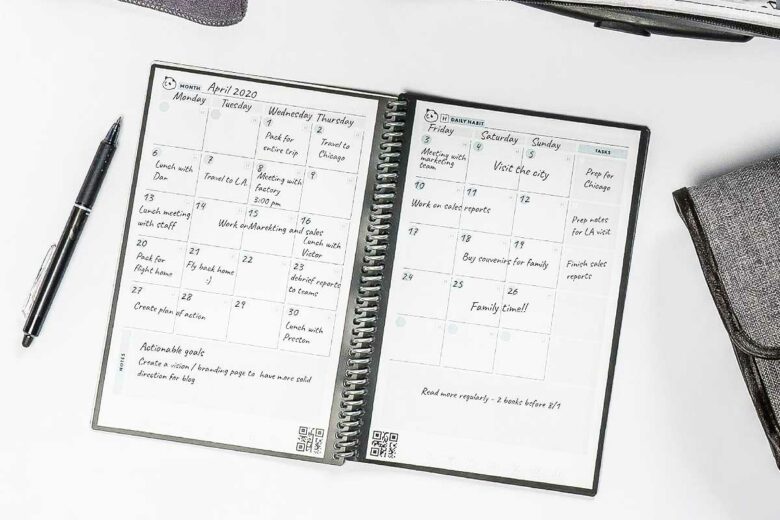 MONTH April 2020
Monday Tuesday Wednesday Thursday
1 2
Pack for
entire trip
Travel to
Chicago
6 7 8 9
Lunch with
Dan
Travel to L.A.
Meeting with
factory
3:00 pm
13 14 15 16
Lunch meeting
with staff
Work on Marekting and sales
Lunch with
Victor
20 21 22 23
Pack for
flight home
Fly back home
:)
debrief reports
to teams
27 28 29 30
Create plan of action
Lunch with
Preston
NOTES
Actionable goals
Create a vision / branding page to have more solid
direction for blog
H DAILY HABIT
Friday Saturday Sunday TASKS
3 4 5
Meeting with
marketing
team
Visit the city
Prep for
Chicago
10 11 12
Work on sales reports
Prep notes
for LA visit
17 18 19
Buy souvenirs for family
Finish sales
reports
24 25 26
Family time!!
Read more regularly - 2 books before 8/1